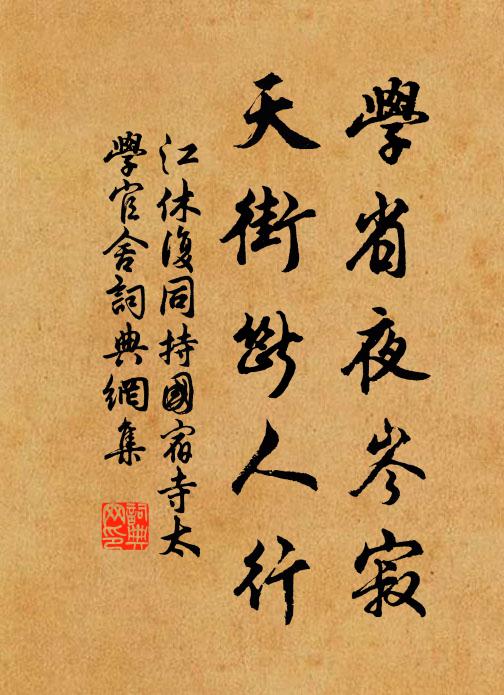 學省夜岑寂
天街斷人行
江休復同持國宿寺太
學官舍詞典網集
詞典
网印